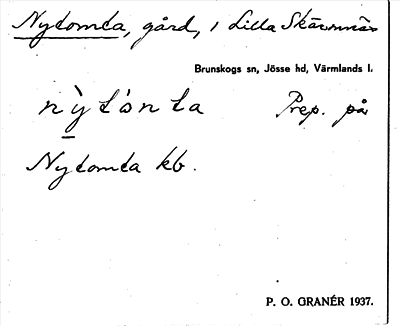 Nytomta, gård, i Lilla Skärmnäs
Brunskogs sn, Jösse hd, Värmlands l.
nỳtònta Prep. på
Nytomta kb.
P. O. GRANÉR 1937.